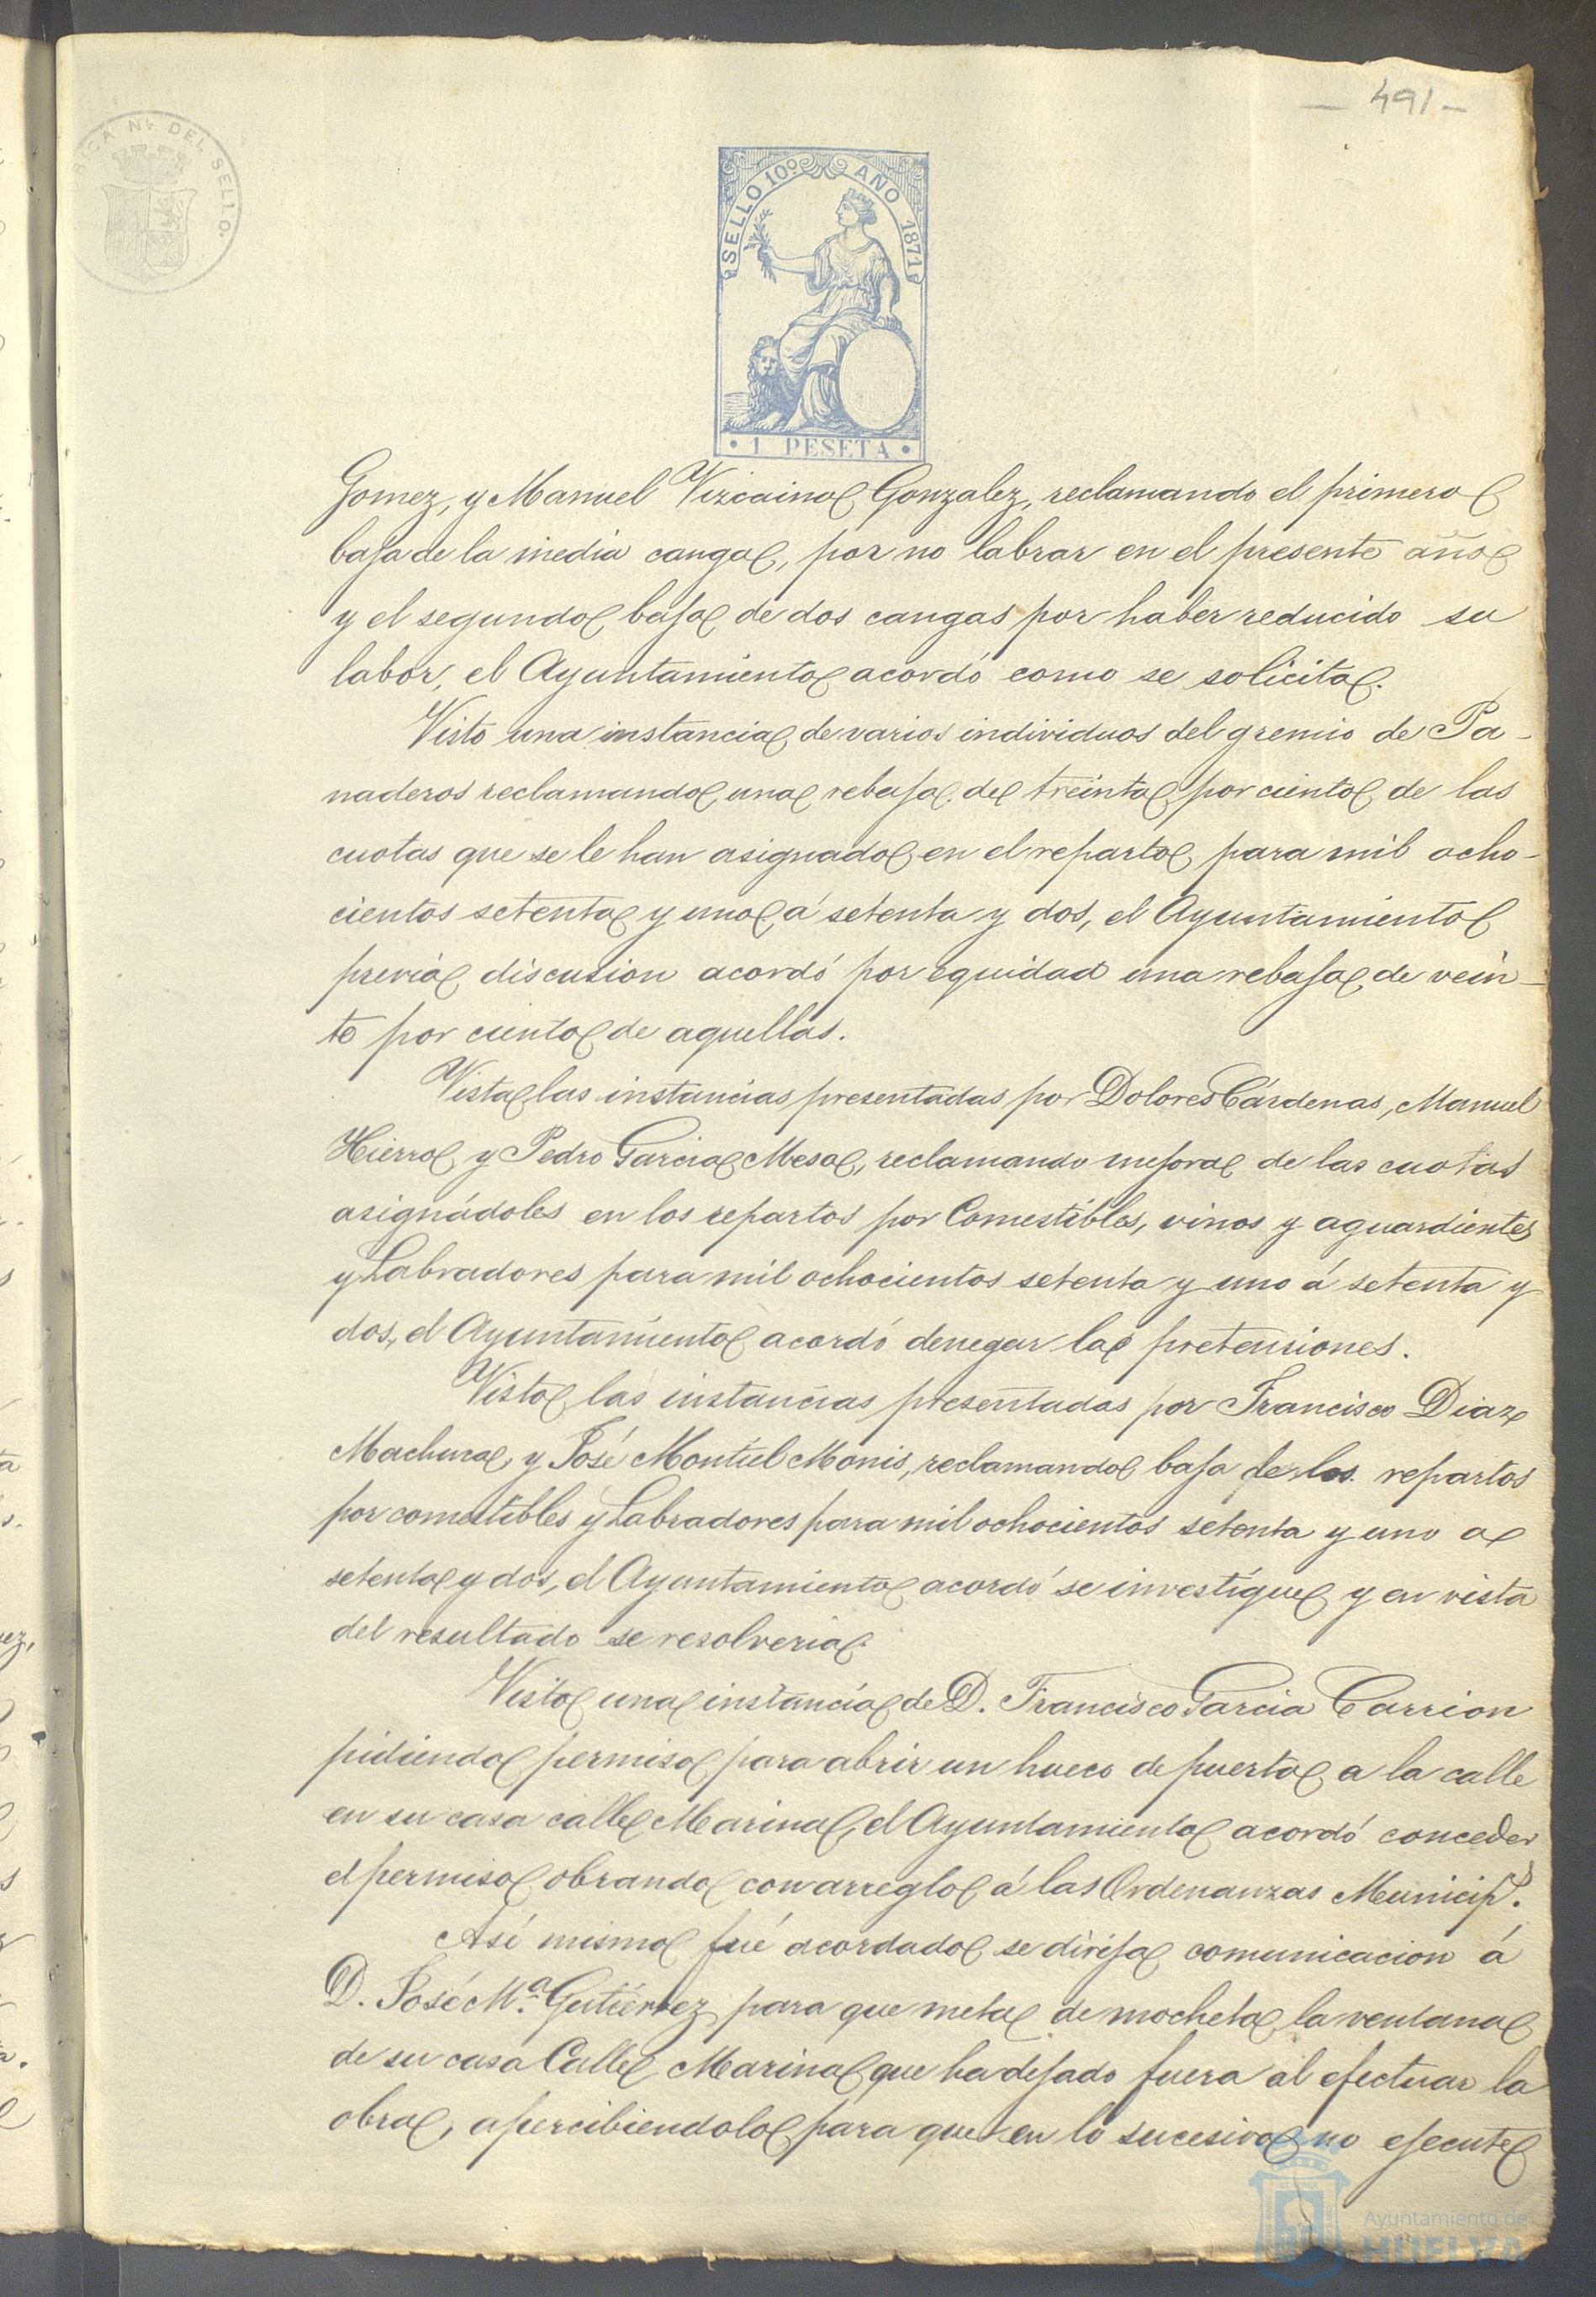 — 491 —
FABRICA Nˡ DEL SELLO.
SELLO 10º AÑO 1871
1 PESETA
Gomez, y Manuel Vizcaino Gonzalez, reclamando el primero
baja de la media canga, por no labrar en el presente año
y el segundo baja de dos cangas por haber reducido su
labor, el Ayuntamiento acordó como se solicita.
Visto una instancia de varios individuos del gremio de Pa-
naderos reclamando una rebaja de treinta por ciento de las
cuotas que se le han asignado en el reparto para mil ocho-
cientos setenta y uno á setenta y dos, el Ayuntamiento
previa discusion acordó por equidad una rebaja de vein-
te por ciento de aquellas.
Vista las instancias presentadas por Dolores Cárdenas, Manuel
Hierro y Pedro Garcia Mesa, reclamando mejora de las cuotas
asignádoles en los repartos por Comestibles, vinos y aguardientes
y Labradores para mil ochocientos setenta y uno á setenta y
dos, el Ayuntamiento acordó denegar las pretensiones.
Visto las instancias presentadas por Francisco Diaz
Machuca y José Montiel Monis, reclamando baja de los repartos
por comestibles y Labradores para mil ochocientos setenta y uno a
setenta y dos, el Ayuntamiento acordó se investigue y en vista
del resultado se resolveria.
Visto una instancia de D. Francisco Garcia Carrion
pidiendo permiso para abrir un hueco de puerta a la calle
en su casa calle Marina, el Ayuntamiento acordó conceder
el permiso obrando con arreglo á las Ordenanzas Municipˢ.
Así mismo fué acordado se dirija comunicacion á
D. José Mª Gutiérrez para que meta de mocheta la ventana
de su casa Calle Marina que ha dejado fuera al efectuar la
obra, apercibiendolo para que en lo sucesivo no ejecute
Ayuntamiento de
HUELVA